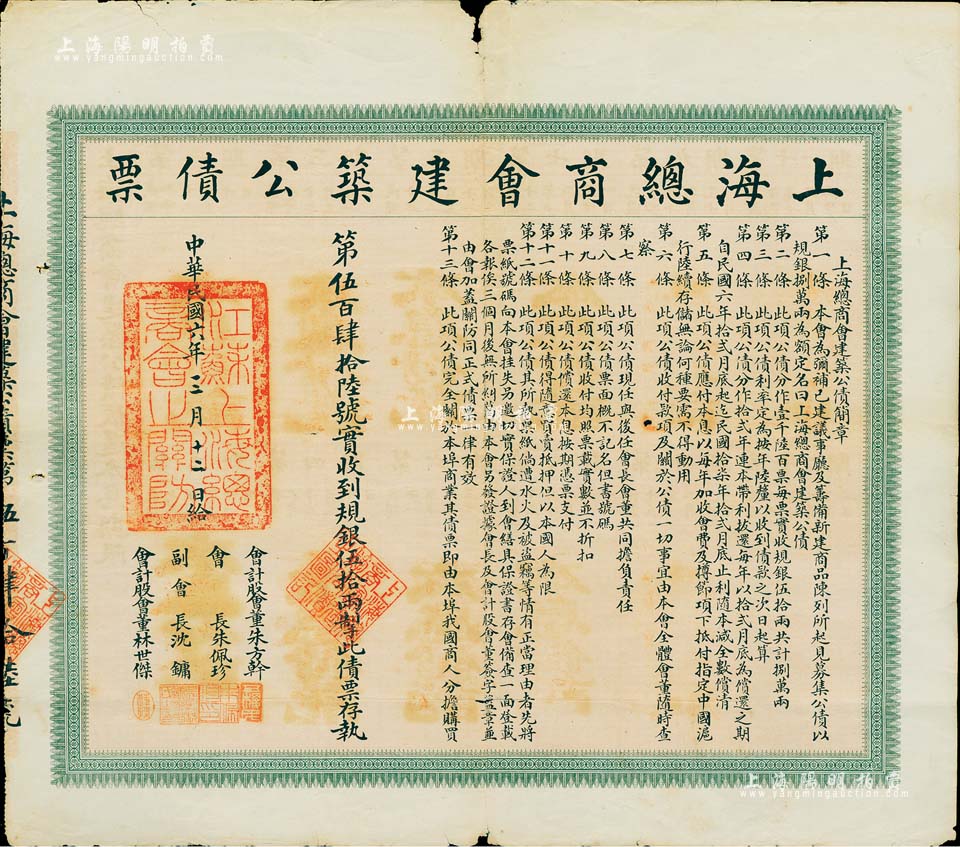 上海陽明拍賣
www.yangmingauction.com
上海總商會建築公債票
上海總商會建築公債簡章
第一條 本會為彌補已建議事廳及籌備新建商品陳列所起見募集公債以
規銀捌萬兩為額定名曰上海總商會建築公債
第二條 此項公債分作壹千陸百票每票實收規銀伍拾兩共計捌萬兩
第三條 此項公債利率定為按年陸釐以收到債款之次日起算
第四條 此項公債分作拾弍年連本帶利拔還每年以拾弍月底為償還之期
自民國六年拾弍月底起迄民國拾柒年拾弍月底止利隨本減全數償清
第五條 此項公債應付本息以每年加收會費及撙節項下抵付指定中國滬
行陸續存儲無論何種要需不得動用
第六條 此項公債收付款項及關於公債一切事宜由本會全體會董隨時查
察
第七條 此項公債現任與後任會長會董共同擔負責任
第八條 此項公債票面概不記名但書號碼
第九條 此項公債收付均照票載實數並不折扣
第十條 此項公債償還本息按期憑票支付
第十一條 此項公債得隨意買賣抵押但以本國人為限
第十二條 此項公債其所執票紙倘遭水火及被盜竊等情有正當理由者先將
票紙號碼向本會掛失另邀切實保證人到會繕具保證書存會備查一面登載
各報俟三個月後無所糾葛由本會另發證據會長及會計股會董簽字蓋章並
由會加蓋關防同正式債票一律有效
第十三條 此項公債完全關於本埠商業其債票即由本埠我國商人分擔購買
第伍百肆拾陸號實收到規銀伍拾兩掣此債票存執
中華民國六年三月十二日給
江蘇上海總商會之關防
會計股會董朱方幹
會長朱佩珍
副會長沈鏞
會計股會董林世傑
上海總商會建築公債票第伍百肆拾陸號
上海陽明拍賣
www.yangmingauction.com
上海陽明拍賣
www.yangmingauction.com